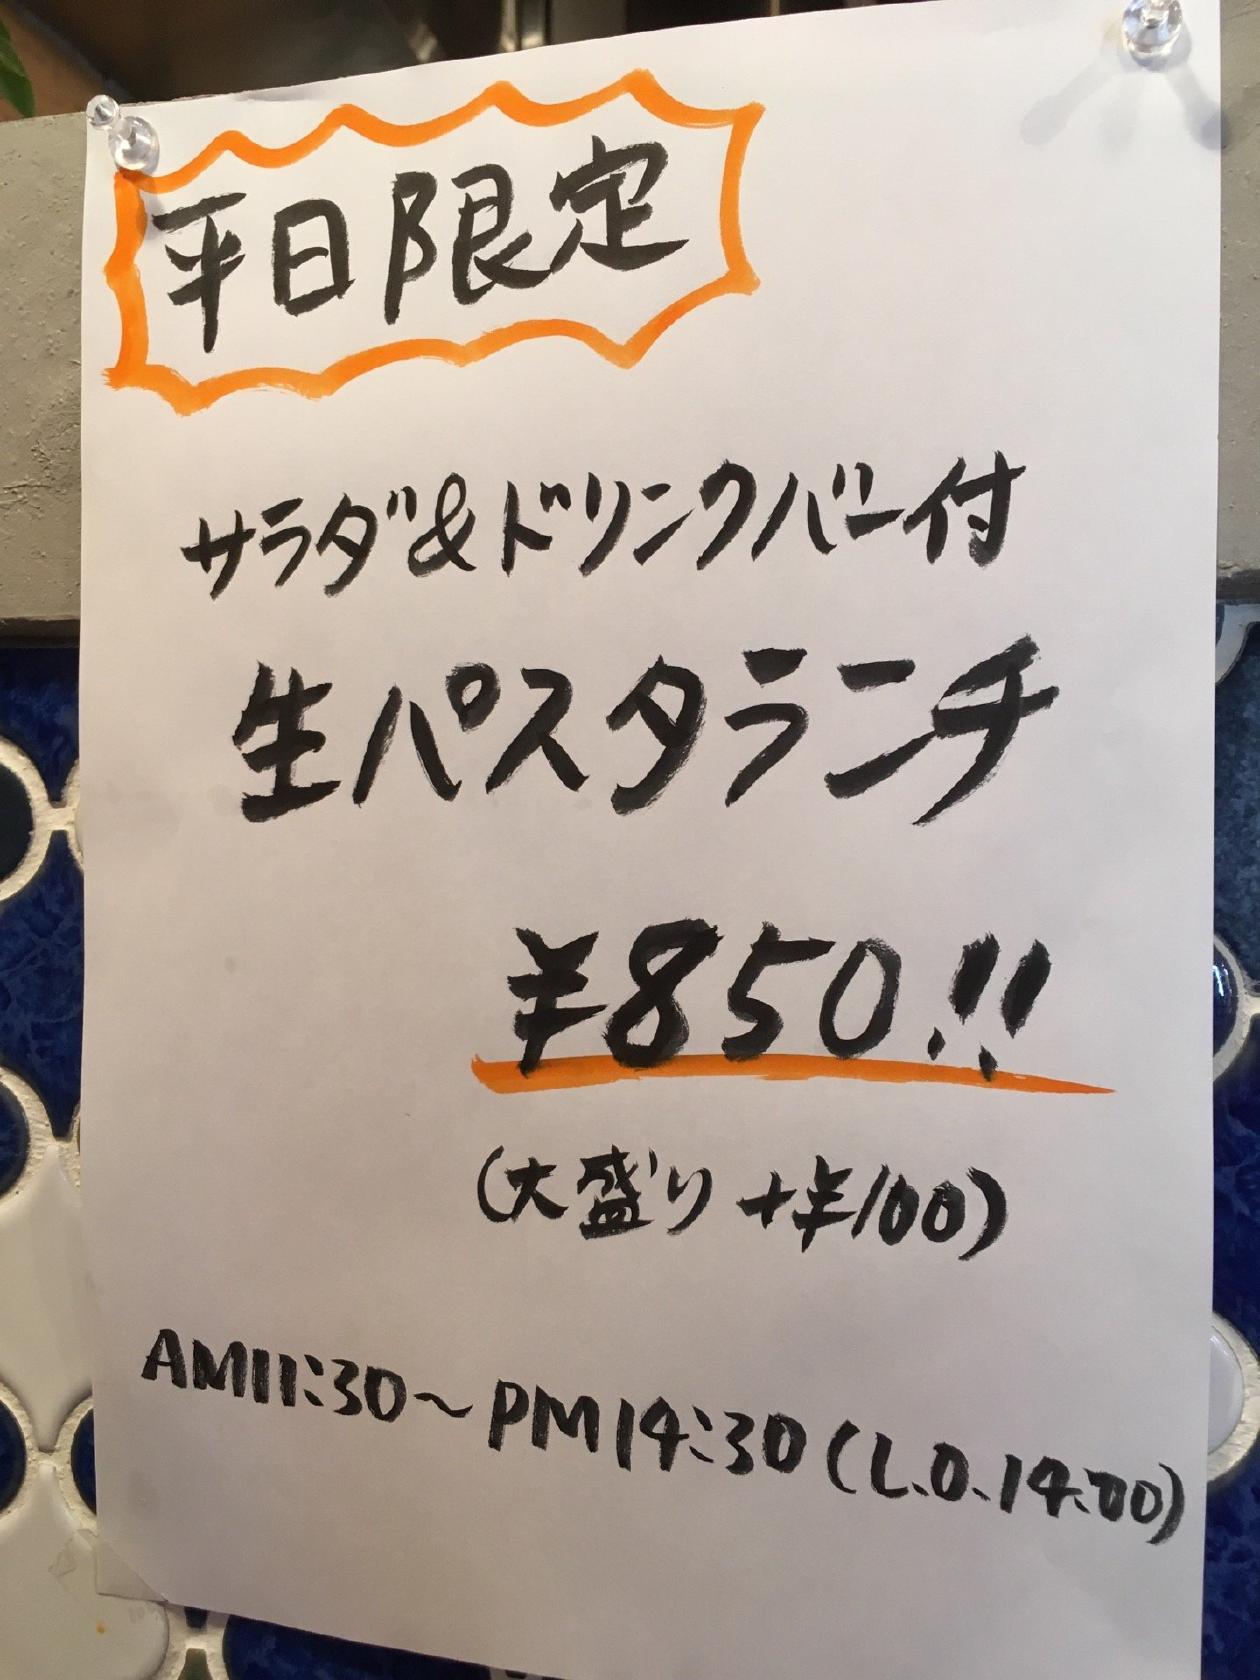 平日限定
サラダ&ドリンクバー付
生パスタランチ
¥850!!
(大盛り +¥100)
AM11:30〜PM14:30(L.O.14:00)